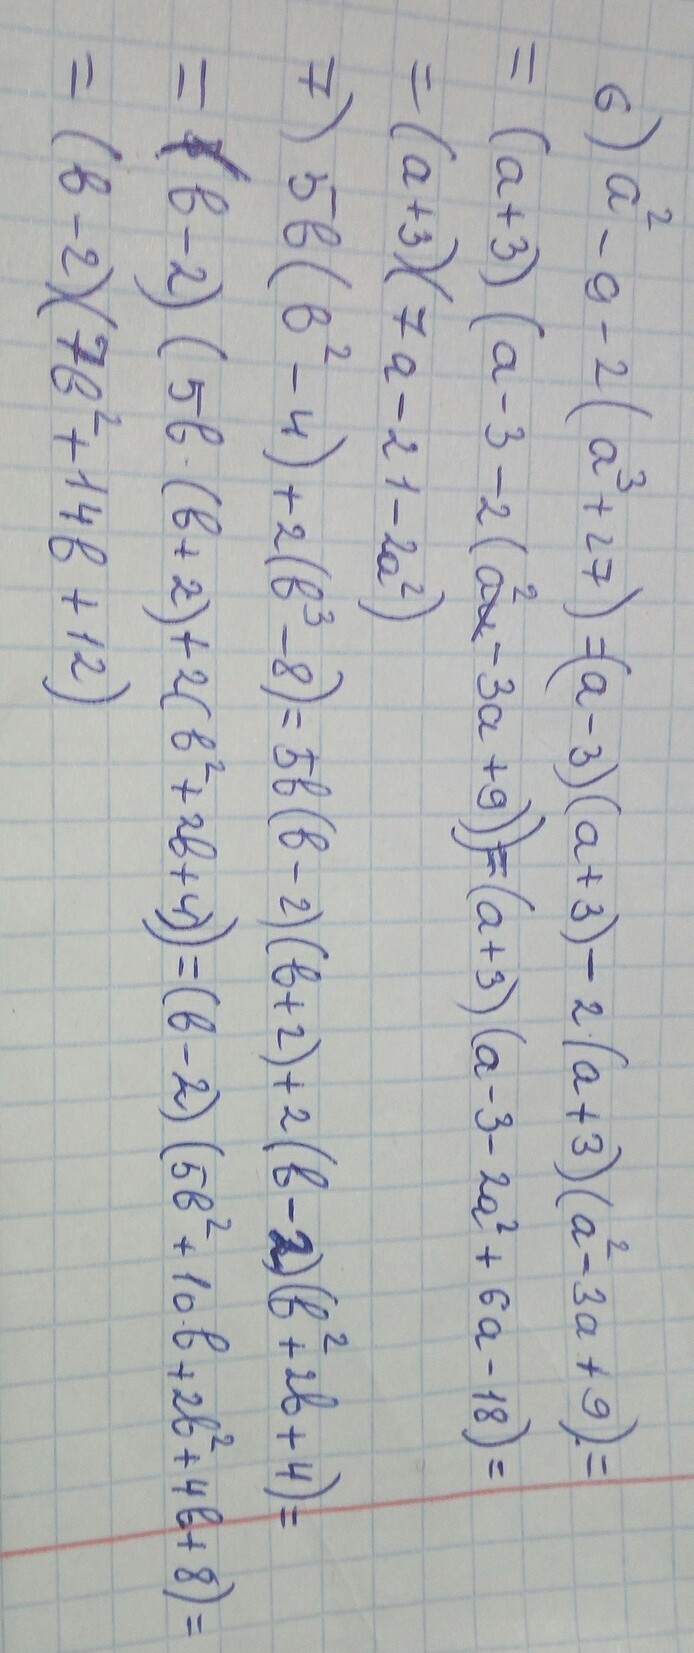 6) a² - 9 - 2(a³ + 27) = (a - 3)(a + 3) - 2·(a + 3)(a² - 3a + 9) =
= (a + 3)(a - 3 - 2(a² - 3a + 9)) = (a + 3)(a - 3 - 2a² + 6a - 18) =
= (a + 3)(7a - 21 - 2a²)
7) 5b(b² - 4) + 2(b³ - 8) = 5b(b - 2)(b + 2) + 2(b - 2)(b² + 2b + 4) =
= (b - 2)(5b·(b + 2) + 2(b² + 2b + 4)) = (b - 2)(5b² + 10b + 2b² + 4b + 8) =
= (b - 2)(7b² + 14b + 12)